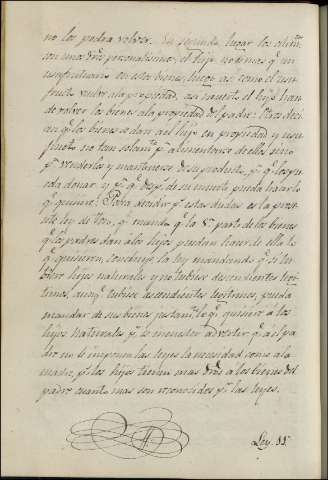 no los podra volver. En segundo lugar los alimtos
son unos dros personalisimos, el hijo no es mas qe un
usufructuario en estos bienes, luego asi como el usu-
fructo vuelve ala propiedad, asi muerto el hijo han
de volver los bienes ala propiedad del padre. Otros deci-
an qe los bienes se dan al hijo en propiedad y usu-
fructo no tan solamte pa alimentarse de ellos sino
pa venderlos y mantenerse de su producto, y pa qe los pue-
da donar y pa qe despues de su muerte pueda hacer lo
qe quisiere. Para decidir pues estas dudas es la prese-
nte ley de Toro, qe manda qe la 5a parte de los bienes
qe los padres dan a los hijos puedan hacer de ella lo
qe quisieren, concluye la ley mandando qe si tu-
biere hijos naturales y no tubiese descendientes legi-
timos, aunqe tubiese ascendientes legitimos, pueda
mandar de sus bienes justamte lo qe quisiere á los
hijos naturales pr es menester advertir qe al pa-
dre no le imponen las leyes la necesidad como ala
madre, pr los hijos tienen mas dros a los bienes del
padre cuanto mas son reconocidos pr las leyes.
Ley. 11.